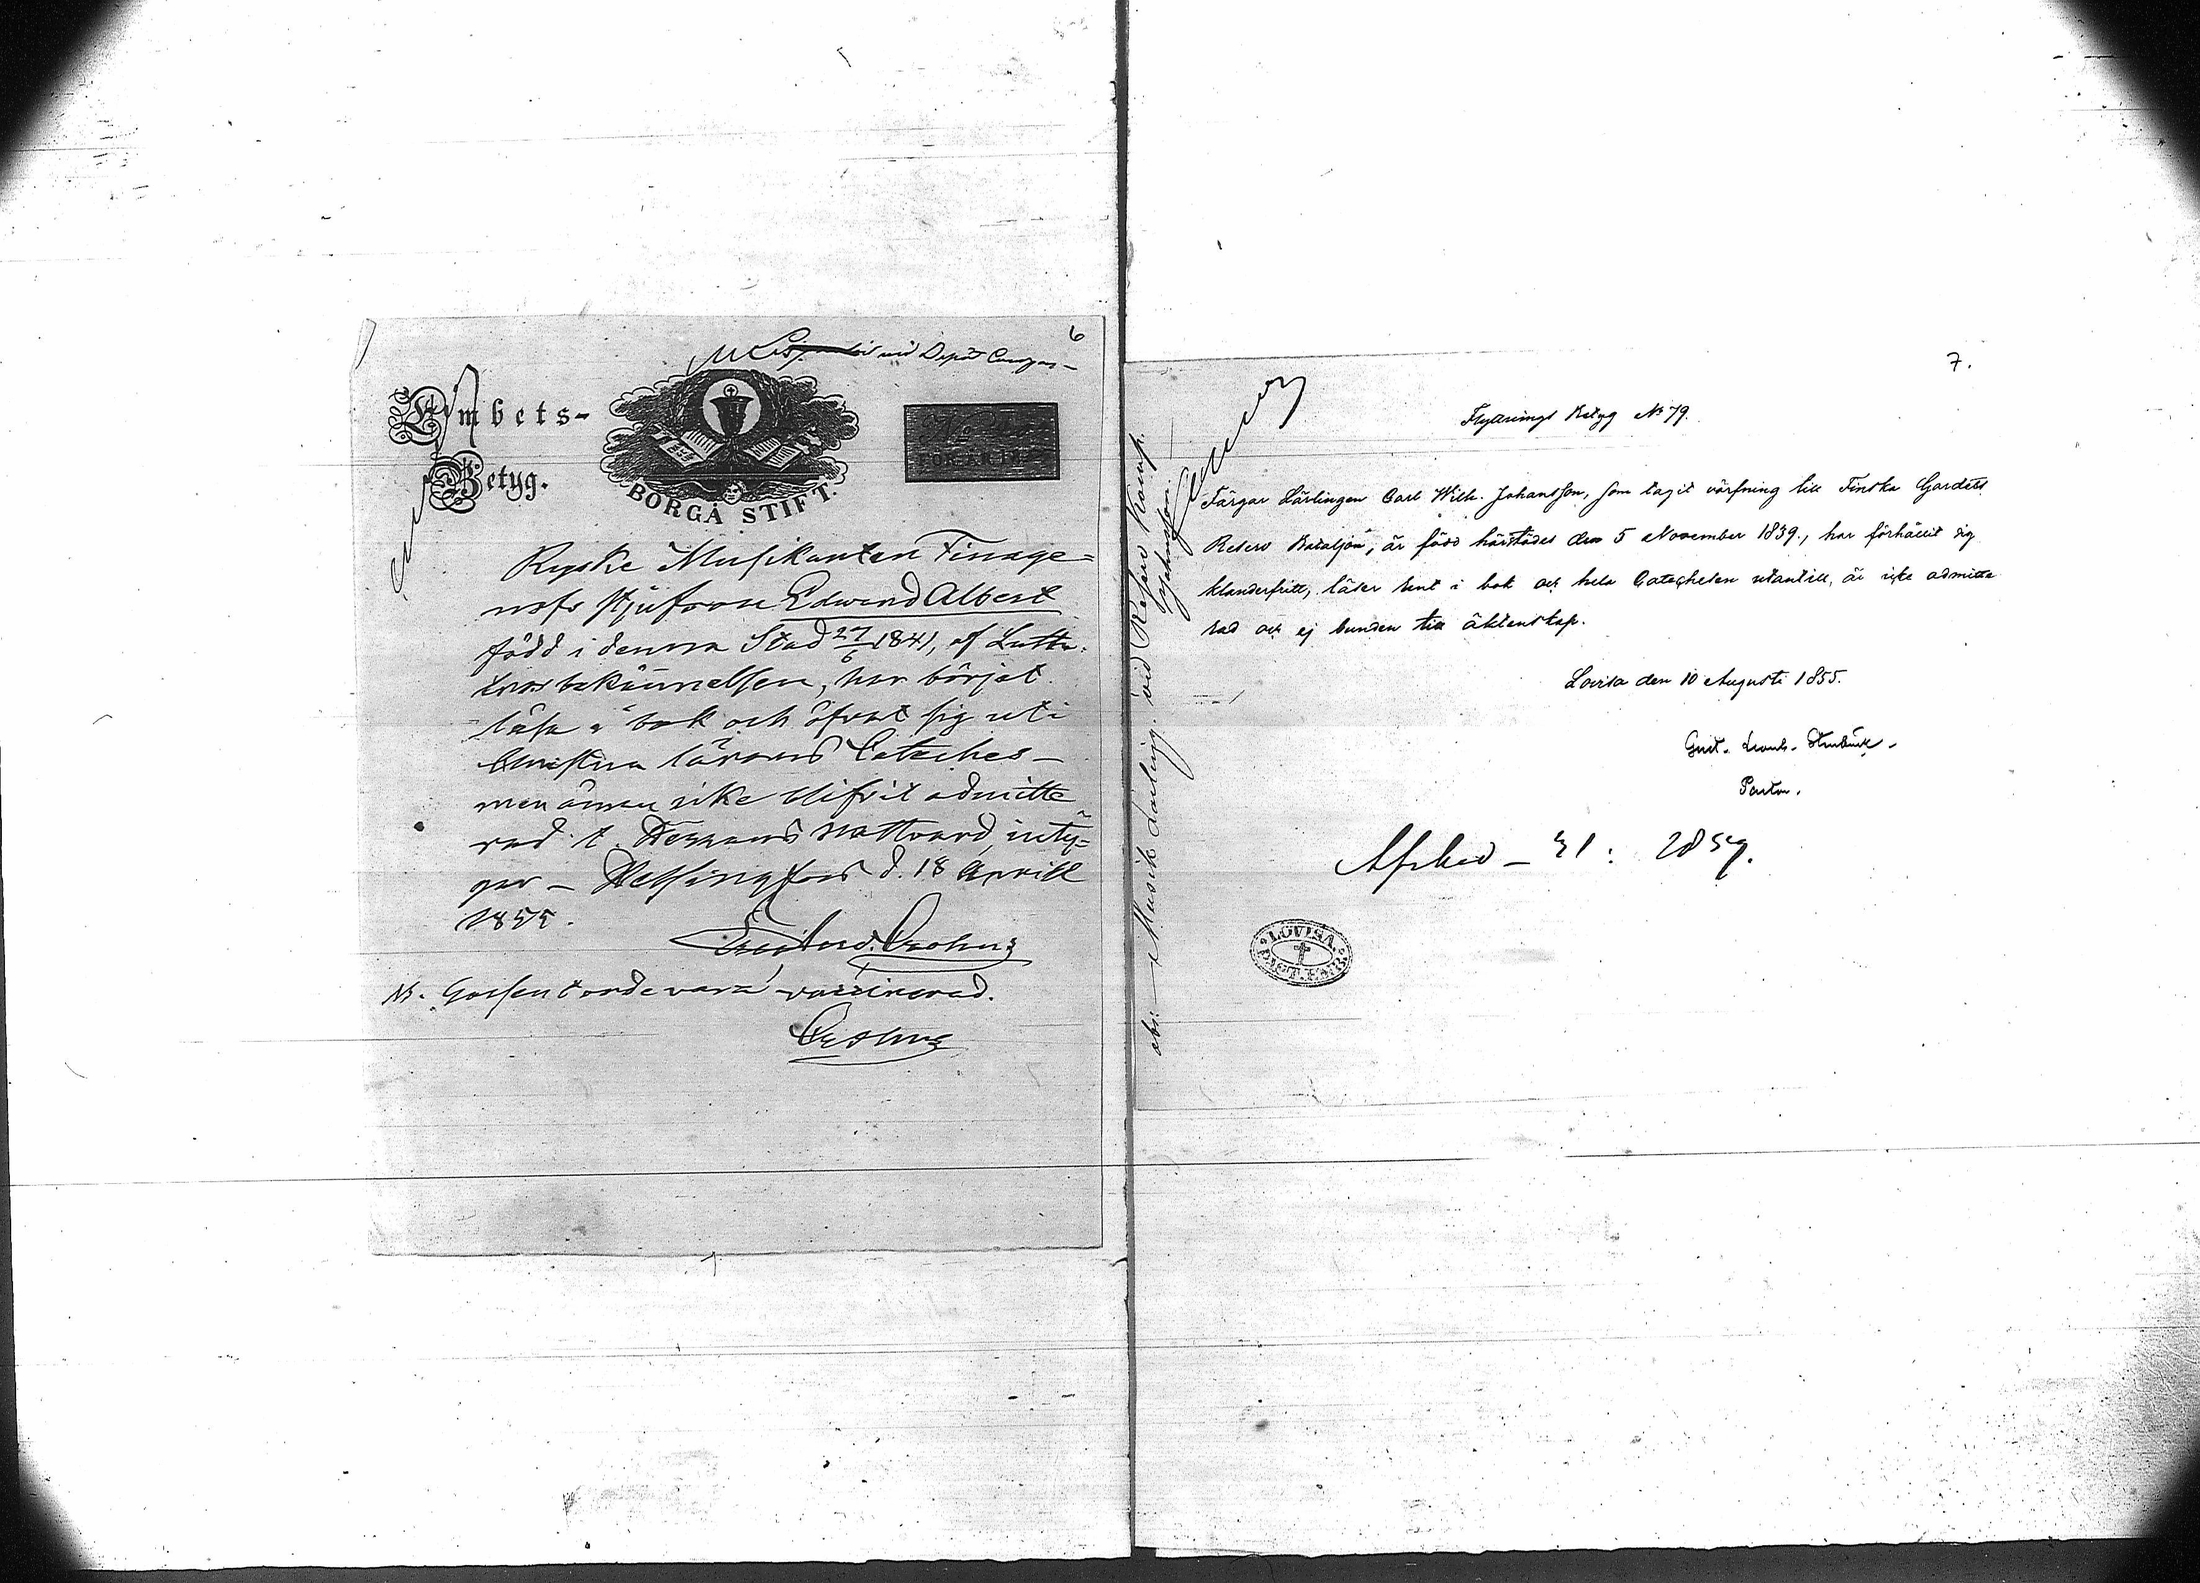 6
vid Depôt Compa-
Embets-
Betyg.
BORGÅ STIFT.
No
Ryske Musikanten Finage-
noffs styfson Edward Albert
född i denna Stad 27/6 1841, af Luthe-
bekännelsen, har börjat
läsa i bok och öfvat sig uti
Christna lärans Cateches-
men ännu icke blifvit admitte-
rad t. Herrans Nattvard, inty-
gar - Helsingfors d. 18 Aprill
1855.
Crohns
NB. Gossen torde vara vaccinerad.
Crohns
7.
Flyttnings Betyg No 79.
Färgar Lärlingen Carl Wilh. Johansson, som tagit värfning till Finska Gardets
Reserv Bataljon, är född härstädes den 5 November 1839, har förhållit sig
klanderfritt, läser rent i bok och hela Catechesen utantill, är icke admitte
rad och ej bunden till äktenskap.
Lovisa den 10 Augusti 1855.
Gust. Leonh. Stenbäck
Pastor.
Afsked - 31: 1859.
LOVISA
PAST. EMB.
obs: Musik Lärling. vid Reserv Komp.
Johansson.